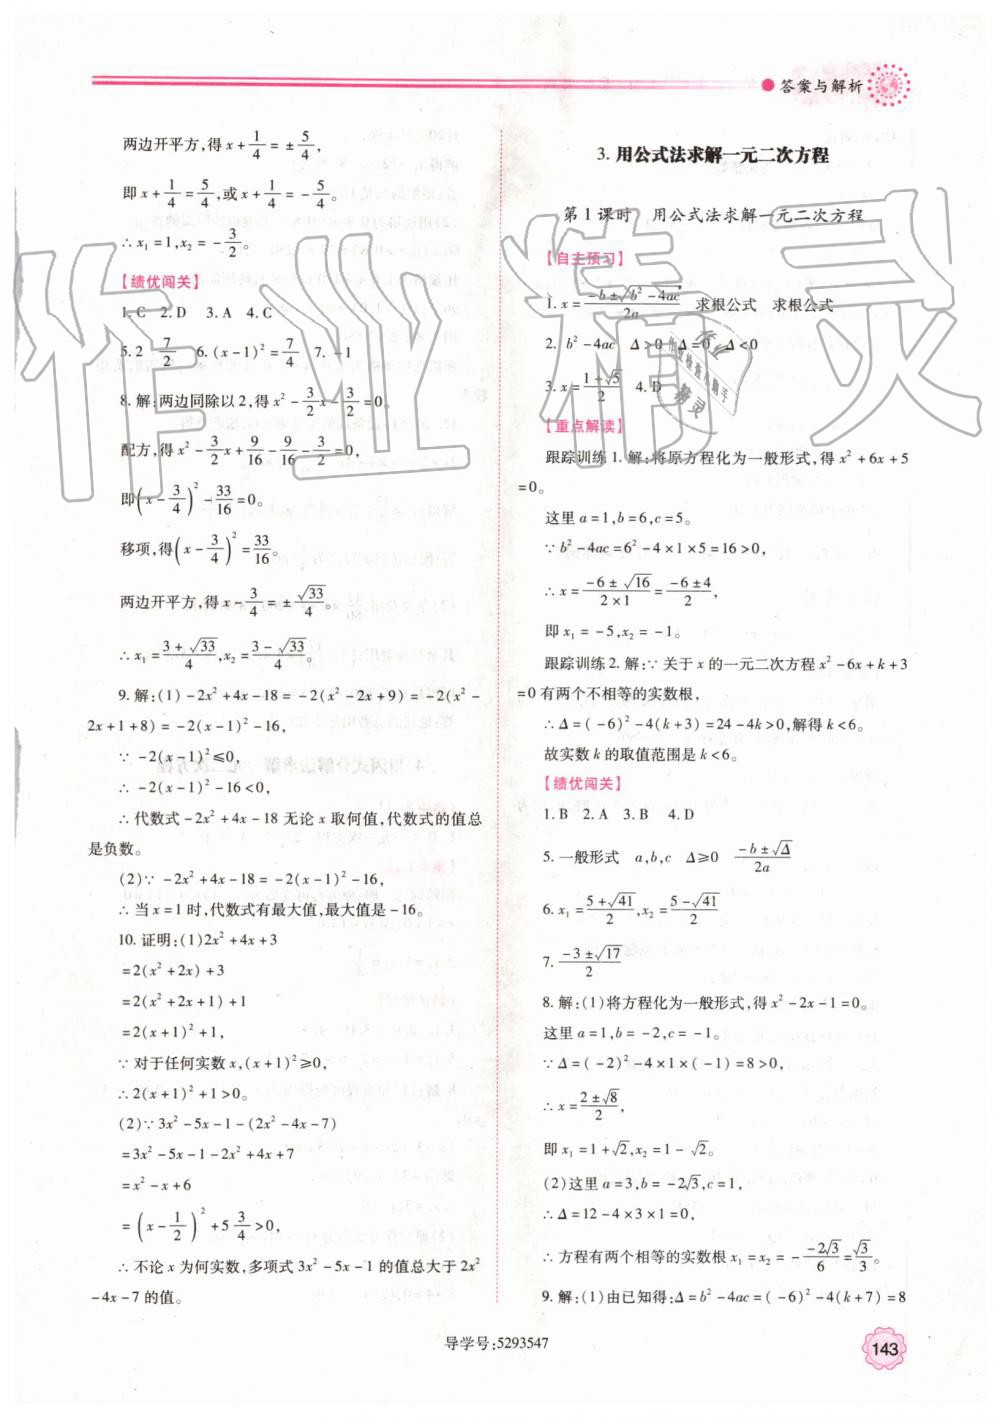 答案与解析
两边开平方,得 x+1/4=±5/4,
即 x+1/4=5/4,或 x+1/4=-5/4。
∴x₁=1,x₂=-3/2。
【绩优闯关】
1.C 2.D 3.A 4.C
5.2 7/2 6.(x-1)²=7/4 7.-1
8.解:两边同除以2,得x²-3/2x-3/2=0。
配方,得x²-3/2x+9/16-9/16-3/2=0,
即(x-3/4)²-33/16=0。
移项,得(x-3/4)²=33/16。
两边开平方,得x-3/4=±√33/4。
∴x₁=(3+√33)/4,x₂=(3-√33)/4。
9.解:(1)-2x²+4x-18=-2(x²-2x+9)=-2(x²-
2x+1+8)=-2(x-1)²-16,
∵-2(x-1)²≤0,
∴-2(x-1)²-16<0,
∴代数式-2x²+4x-18无论x取何值,代数式的值总
是负数。
(2)∵-2x²+4x-18=-2(x-1)²-16,
∴当x=1时,代数式有最大值,最大值是-16。
10.证明:(1)2x²+4x+3
=2(x²+2x)+3
=2(x²+2x+1)+1
=2(x+1)²+1,
∵对于任何实数x,(x+1)²≥0,
∴2(x+1)²+1>0。
(2)∵3x²-5x-1-(2x²-4x-7)
=3x²-5x-1-2x²+4x+7
=x²-x+6
=(x-1/2)²+5 3/4>0,
∴不论x为何实数,多项式3x²-5x-1的值总大于2x²
-4x-7的值。
3.用公式法求解一元二次方程
第1课时 用公式法求解一元二次方程
【自主预习】
1.x=(-b±√(b²-4ac))/2a 求根公式 求根公式
2.b²-4ac Δ>0 Δ=0 Δ<0
3.x=(1±√5)/2 4.D
【重点解读】
跟踪训练1.解:将原方程化为一般形式,得x²+6x+5
=0。
这里a=1,b=6,c=5。
∵b²-4ac=6²-4×1×5=16>0,
∴x=(-6±√16)/(2×1)=(-6±4)/2,
即x₁=-5,x₂=-1。
跟踪训练2.解:∵关于x的一元二次方程x²-6x+k+3
=0有两个不相等的实数根,
∴Δ=(-6)²-4(k+3)=24-4k>0,解得k<6。
故实数k的取值范围是k<6。
【绩优闯关】
1.B 2.A 3.B 4.D
5.一般形式 a,b,c Δ≥0 (-b±√Δ)/2a
6.x₁=(5+√41)/2,x₂=(5-√41)/2
7.(-3±√17)/2
8.解:(1)将方程化为一般形式,得x²-2x-1=0。
这里a=1,b=-2,c=-1。
∵Δ=(-2)²-4×1×(-1)=8>0,
∴x=(2±√8)/2,
即x₁=1+√2,x₂=1-√2。
(2)这里a=3,b=-2√3,c=1,
∴Δ=12-4×3×1=0,
∴方程有两个相等的实数根x₁=x₂=-(-2√3)/6=√3/3。
9.解:(1)由已知得:Δ=b²-4ac=(-6)²-4(k+7)=8
导学号:5293547
143
作业精灵